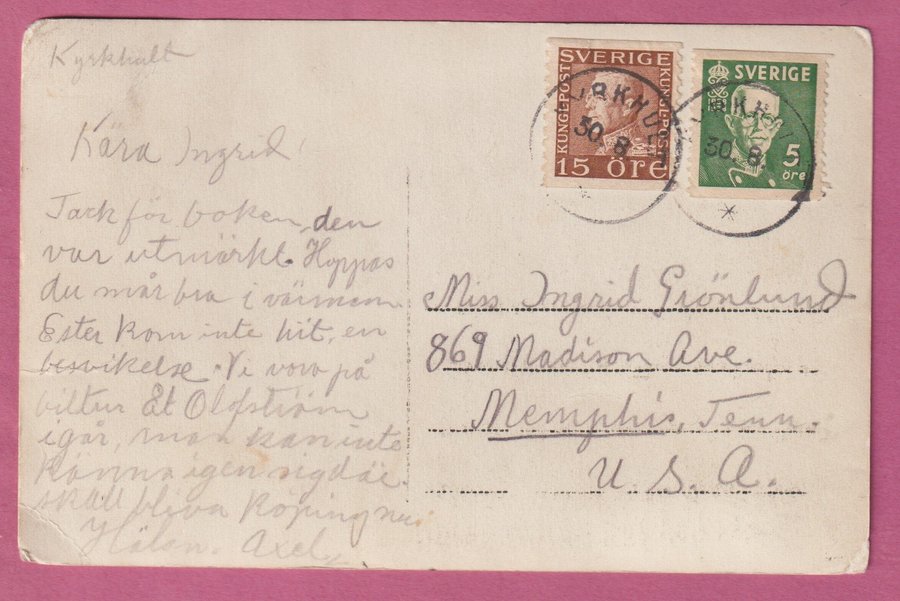 Kyrkhult
Kära Ingrid
Tack för boken, den
var utmärkt. Hoppas
du mår bra i värmen.
Ester kom inte hit, en
besvikelse. Vi voro på
biltur åt Olofström
igår, man kan inte
känna igen sig där.
skall bliva köping nu.
Hälsn. Axel
SVERIGE
KUNGL-POST
KUNGL-POST
15 ÖRE
SVERIGE
5
öre
30. 8.
30. 8.
Miss Ingrid Grönlund
869 Madison Ave.
Memphis, Tenn.
U. S. A.